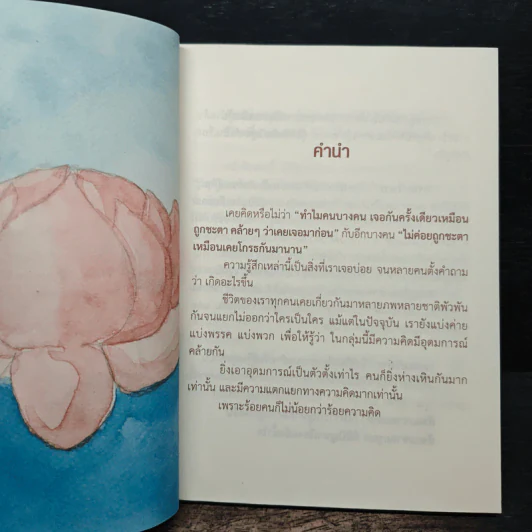 คำนำ
เคยคิดหรือไม่ว่า "ทำไมคนบางคน เจอกันครั้งเดียวเหมือน
ถูกชะตา คล้ายๆ ว่าเคยเจอมาก่อน" กับอีกบางคน "ไม่ค่อยถูกชะตา
เหมือนเคยโกรธกันมานาน"
ความรู้สึกเหล่านี้เป็นสิ่งที่เราเจอบ่อย จนหลายคนตั้งคำถาม
ว่า เกิดอะไรขึ้น
ชีวิตของเราทุกคนเคยเกี่ยวกันมาหลายภพหลายชาติพัวพัน
กันจนแยกไม่ออกว่าใครเป็นใคร แม้แต่ในปัจจุบัน เรายังแบ่งค่าย
แบ่งพรรค แบ่งพวก เพื่อให้รู้ว่า ในกลุ่มนี้มีความคิดมีอุดมการณ์
คล้ายกัน
ยิ่งเอาอุดมการณ์เป็นตัวตั้งเท่าไร คนก็ยิ่งห่างเหินกันมาก
เท่านั้น และมีความแตกแยกทางความคิดมากเท่านั้น
เพราะร้อยคนก็ไม่น้อยกว่าร้อยความคิด